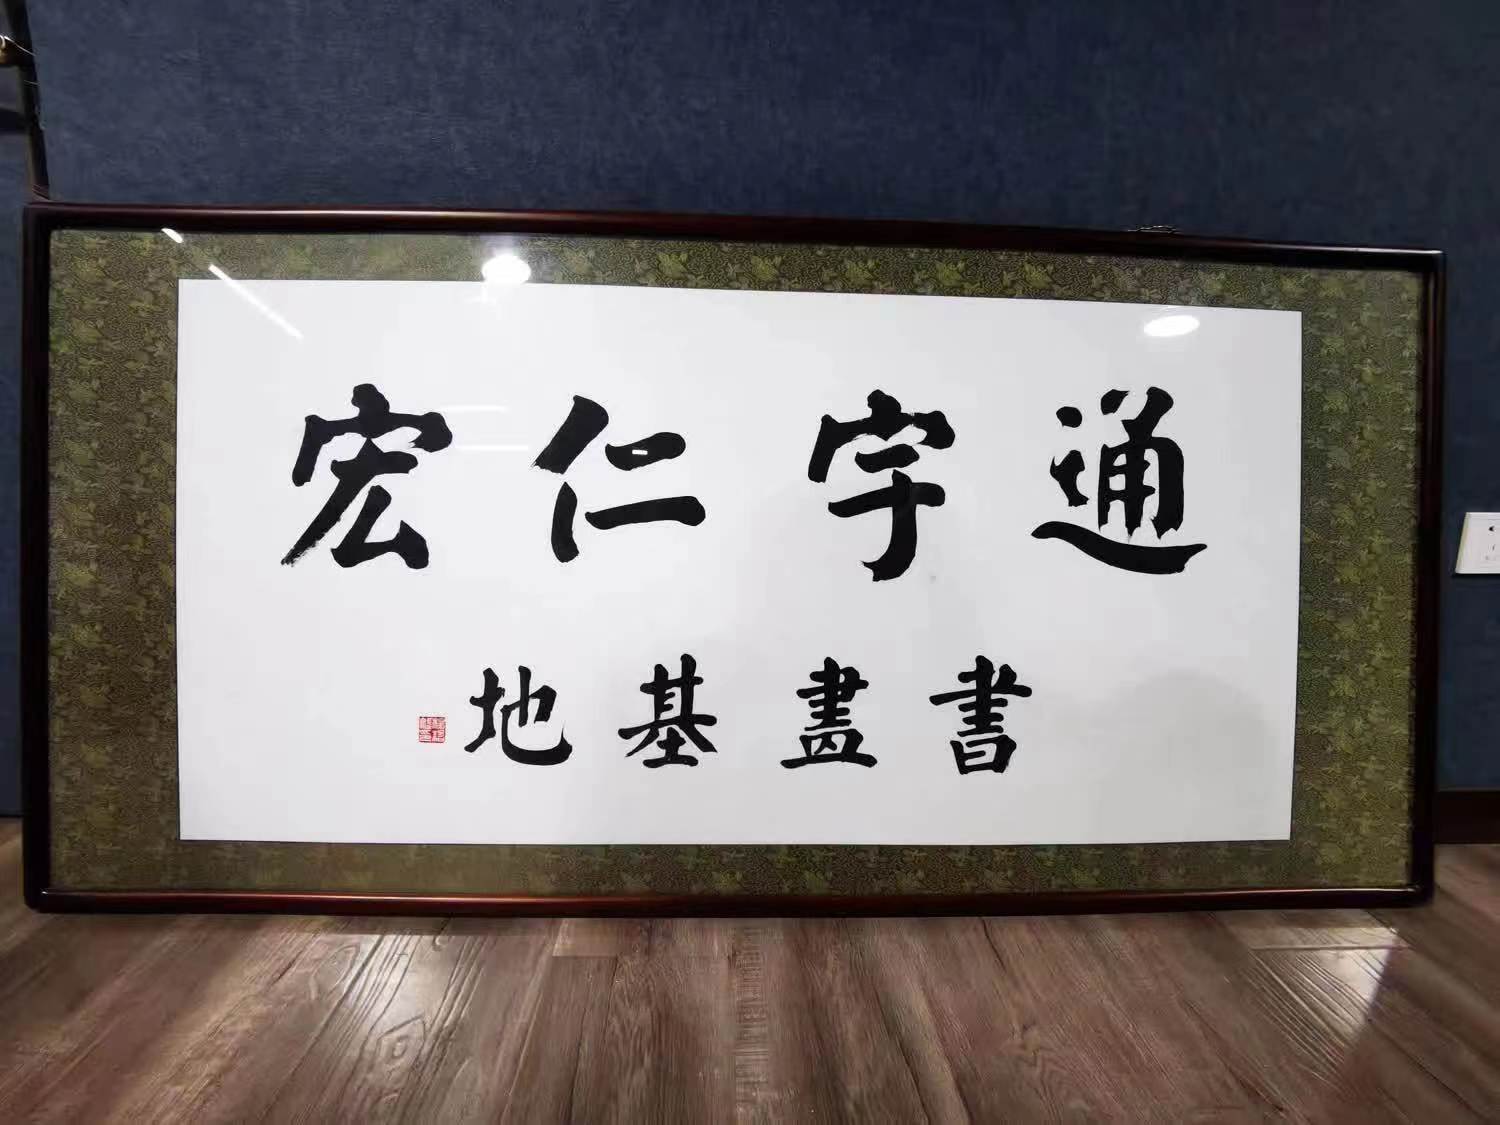 通宇仁宏
書畫基地